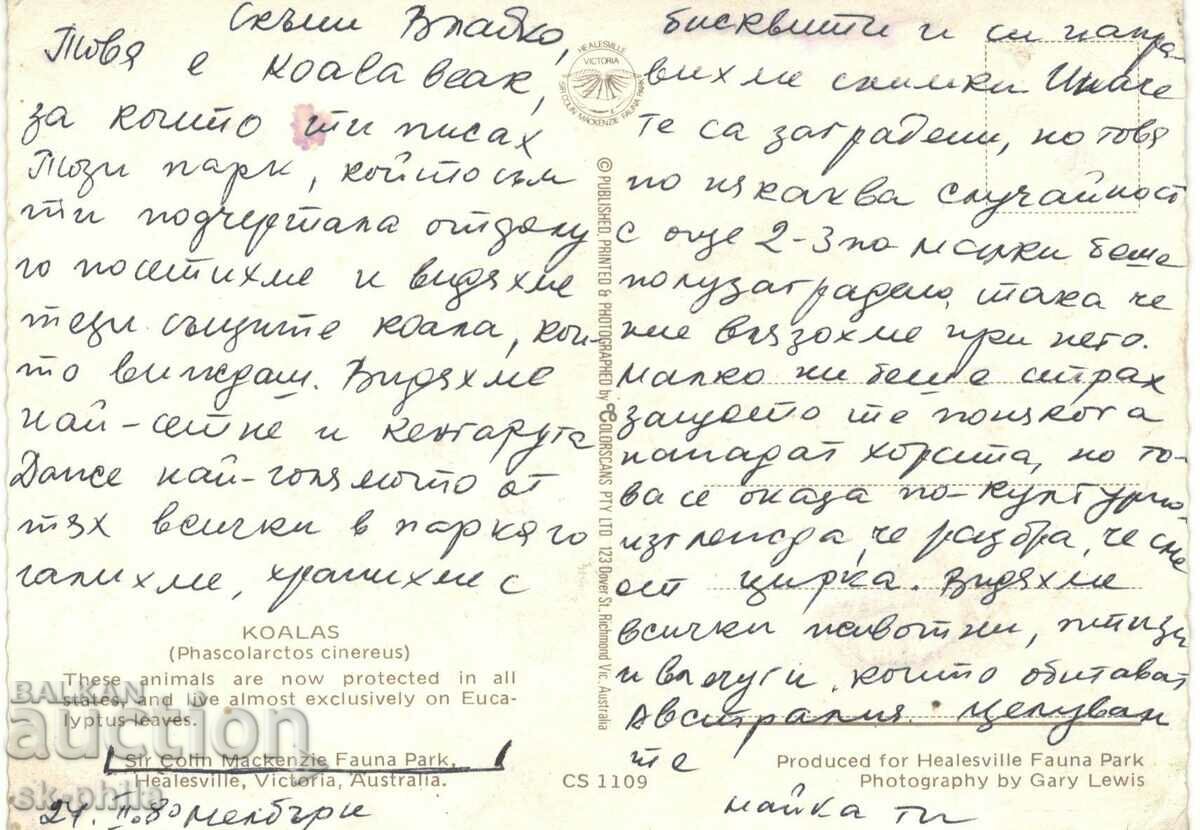 Скъпи Владко,
Това е Коала Веак,
за които ти писах
Този парк, който съм
ти подчертала отдолу
го посетихме и видяхме
тези същите коала, кои-
то виждаш. Видяхме
най-сетне и кенгарута
Даже най-голямото от
тях всички в парка го
галихме, хранихме с
KOALAS
(Phascolarctos cinereus)
These animals are now protected in all
states, and live almost exclusively on Euca-
lyptus leaves.
Sir Colin Mackenzie Fauna Park,
Healesville, Victoria, Australia.
24. II. 80 Мелбърн
HEALESVILLE
VICTORIA
SIR COLIN MACKENZIE FAUNA PARK
© PUBLISHED, PRINTED & PHOTOGRAPHED by COLORSCANS PTY LTD 123 Dover St. Richmond Vic. Australia
CS 1109
бисквити и си напра-
вихме снимки. Иначе
те са заградени, но това
по някаква случайност
с още 2-3 по-малки беше
полузаградено, така че
ние влязохме при него.
Малко ни беше страх
защото те понякога
нападат хората, но то-
ва се оказа по-културно
изглежда, че разбра, че сме
от цирка. Видяхме
всички животни, птици
и влечуги, които обитават
Австралия. Целувам
те
майка ти
Produced for Healesville Fauna Park
Photography by Gary Lewis
BALKAN
auction
sk-phila